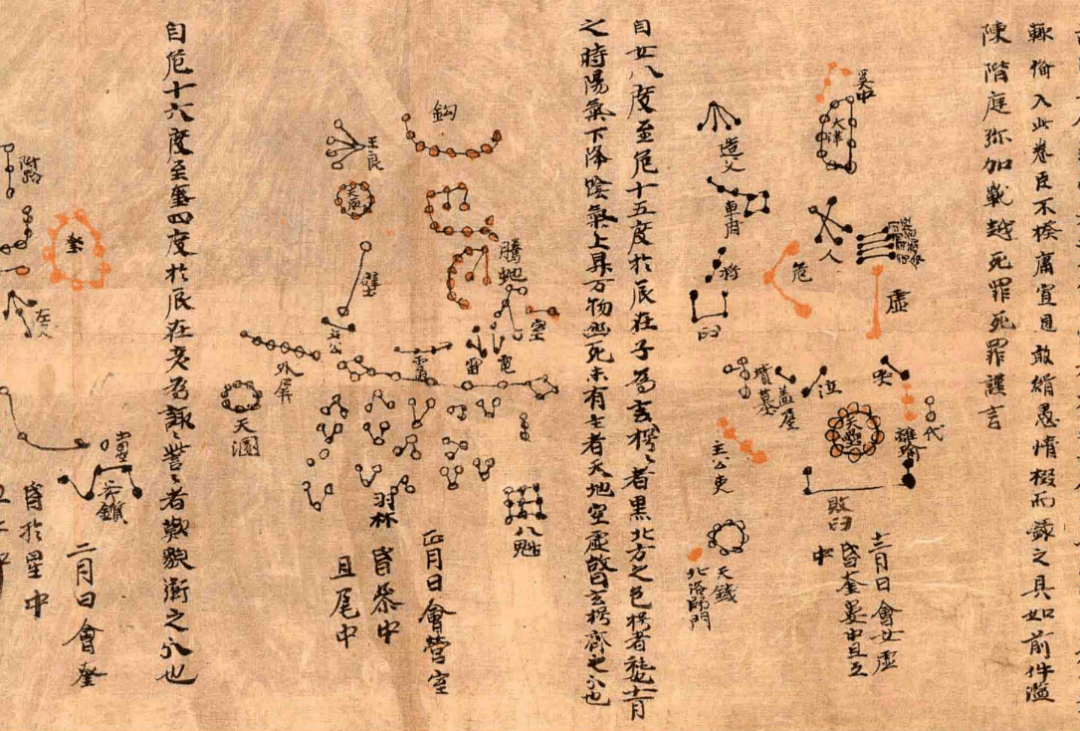 輙偷入此卷臣不揆庸冝見敢緝愚情掇而錄之具如前件濫
陳階庭弥加戰越死罪死罪謹言
奚中
天津
人
虛
危
造父
車甫
杵
臼
哭
泣
盖屋
墳墓
代
離瑜
天壘
敗臼
天錢
北落師門
十二月日會女虛
昏奎婁中旦互
中
自女八度至危十五度於辰在子為玄枵〻者黑北方之色枵者耗也十一月
之時陽氣下降陰氣上昇万物幽死未有生者天地空虛故曰玄枵齊之分也
鈎
王良
騰虵
室
電
雷
壁
土公
外屏
天溷
羽林
八魁
正月日會營室
昏參中
旦尾中
自危十六度至奎四度於辰在亥為諏〻訾〻者歎貌衛之分也
附路
奎
二月日會奎
昏於星中